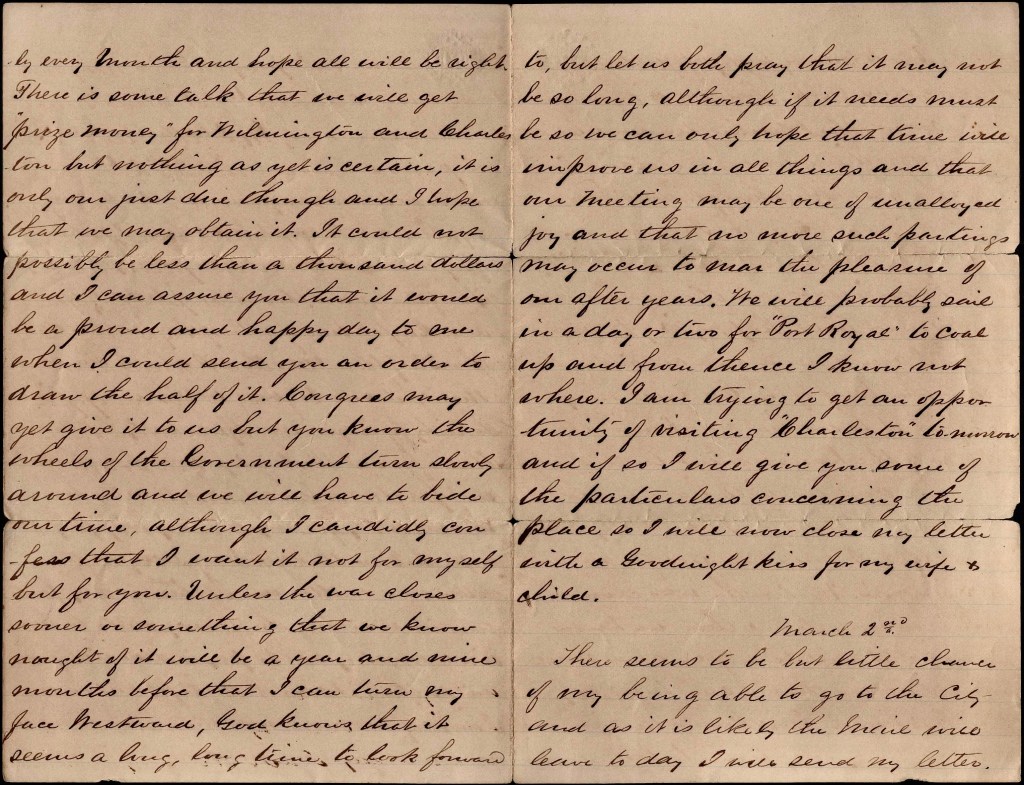 -ly every month and hope all will be right.
There is some talk that we will get
"prize money" for Wilmington and Charles
-ton but nothing as yet is certain, it is
only our just due though and I hope
that we may obtain it. It could not
possibly be less than a thousand dollars
and I can assure you that it would
be a proud and happy day to me
when I could send you an order to
draw the half of it. Congress may
yet give it to us but you know the
wheels of the Government turn slowly
around and we will have to bide
our time, although I candidly con
-fess that I want it not for myself
but for you. Unless the war closes
sooner or something that we know
nought of it will be a year and nine
months before that I can turn my
face Westward, God knows that it
seems a long, long time to look forward
to, but let us both pray that it may not
be so long, although if it needs must
be so we can only hope that time will
improve us in all things and that
our meeting may be one of unalloyed
joy and that no more such partings
may occur to mar the pleasure of
our after years. We will probably sail
in a day or two for "Port Royal" to coal
up and from thence I know not
where. I am trying to get an oppor
tunity of visiting "Charleston" to-morrow
and if so I will give you some of
the particulars concerning the
place so I will now close my letter
with a Goodnight kiss for my wife &
child.
March 2nd
There seems to be but little chance
of my being able to go to the City
and as it is likely the Mail will
leave to day I will send my letter.